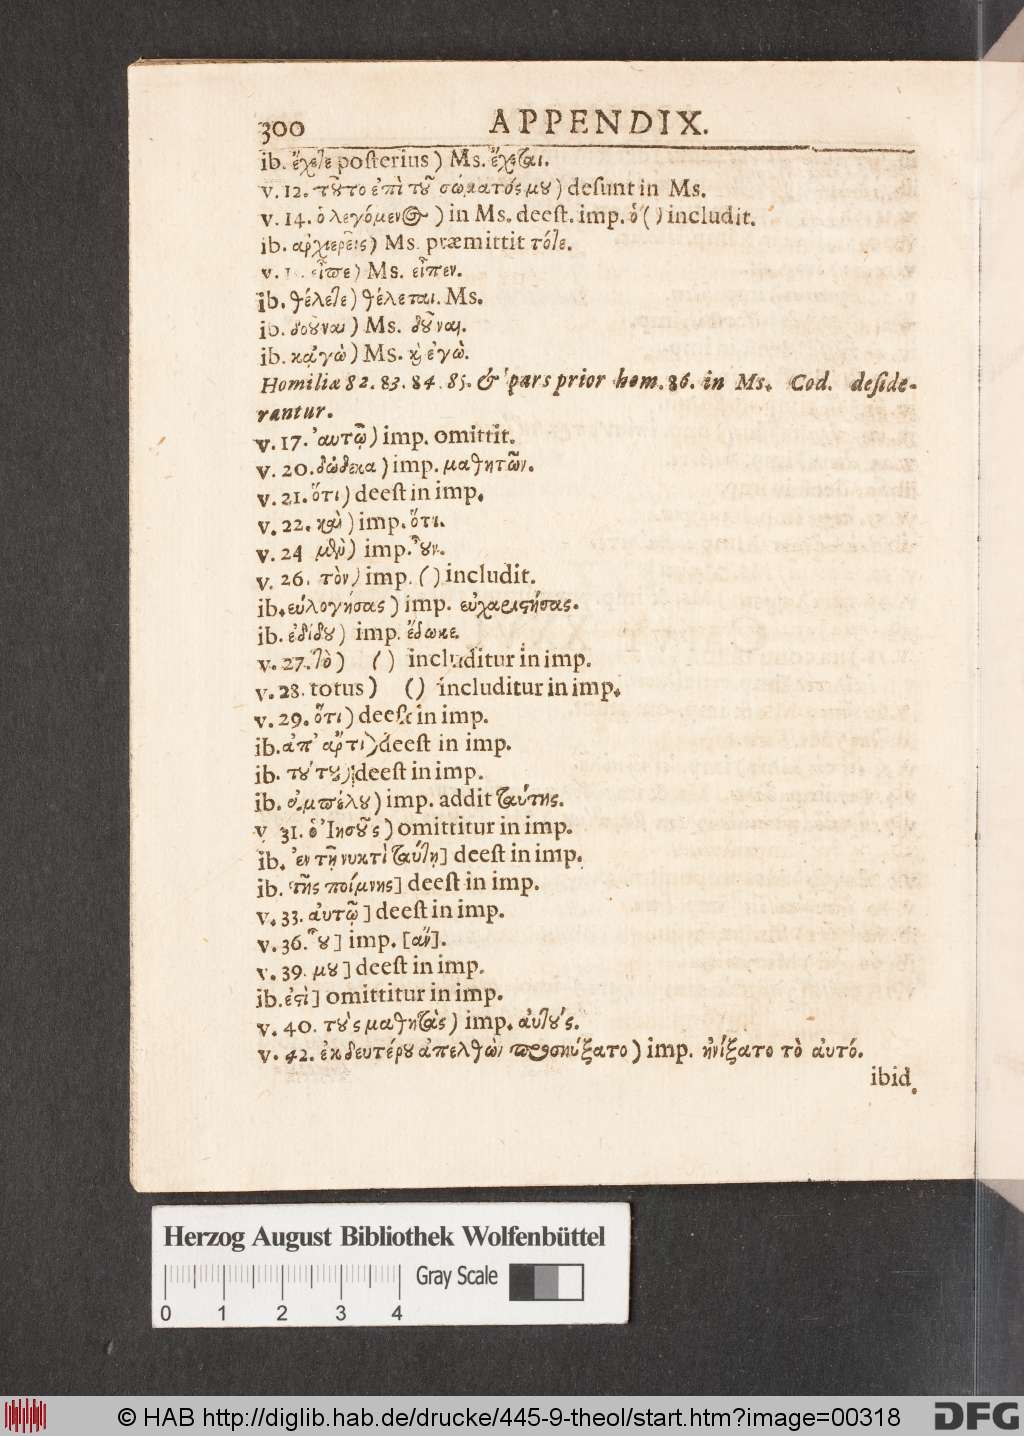 300 APPENDIX.
ib. ἔχετε posterius) Ms. ἔχεται.
v. 12. τοῦτο ἐπὶ τοῦ σώματός μου) desunt in Ms.
v. 14. ὁ λεγόμενος) in Ms. deest. imp. ὁ () includit.
ib. ἀρχιερεῖς) Ms. præmittit τότε.
v. εἶπε) Ms. εἶπεν.
ib. θέλετε) θέλεται. Ms.
ib. δοῦναι) Ms. δοῦναι.
ib. κᾀγὼ) Ms. καὶ ἐγὼ.
Homiliæ 82. 83. 84. 85. & pars prior hom. 86. in Ms. Cod. deside-
rantur.
v. 17. αὐτῷ) imp. omittit.
v. 20. δώδεκα) imp. μαθητῶν.
v. 21. ὅτι) deest in imp.
v. 22. καὶ) imp. ὅτι.
v. 24 μὲν) imp. οὖν.
v. 26. τὸν) imp. () includit.
ib. εὐλογήσας) imp. εὐχαριστήσας.
ib. ἐδίδου) imp. ἔδωκε.
v. 27. τὸ) () includitur in imp.
v. 28. totus) () includitur in imp.
v. 29. ὅτι) deest in imp.
ib. ἀπ' ἄρτι) deest in imp.
ib. τούτου) deest in imp.
ib. ἀμπέλου) imp. addit ταύτης.
v 31. ὁ Ἰησοῦς) omittitur in imp.
ib. ἐν τῇ νυκτὶ ταύτῃ] deest in imp.
ib. τῆς ποίμνης] deest in imp.
v. 33. αὐτῷ] deest in imp.
v. 36. οὗ] imp. [ἂν].
v. 39. μου] deest in imp.
ib. ἐστὶ] omittitur in imp.
v. 40. τοὺς μαθητὰς) imp. αὐτούς.
v. 42. ἐκ δευτέρου ἀπελθὼν προσηύξατο) imp. ηὔξατο τὸ αὐτό.
ibid.
Herzog August Bibliothek Wolfenbüttel
Gray Scale
0 1 2 3 4
© HAB http://diglib.hab.de/drucke/445-9-theol/start.htm?image=00318
DFG